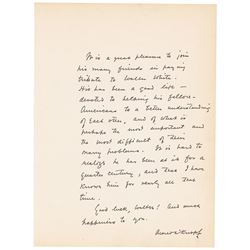 It is a great pleasure to join
his many friends in paying
tribute to Walter White.
His has been a good life —
devoted to helping his fellow-
Americans to a better understanding
of each other, and of what is
perhaps the most important and
the most difficult of their
many problems. It is hard to
realize he has been at it for a
quarter century, and that I have
known him for nearly all that
time.
Good luck, Walter! And much
happiness to you.